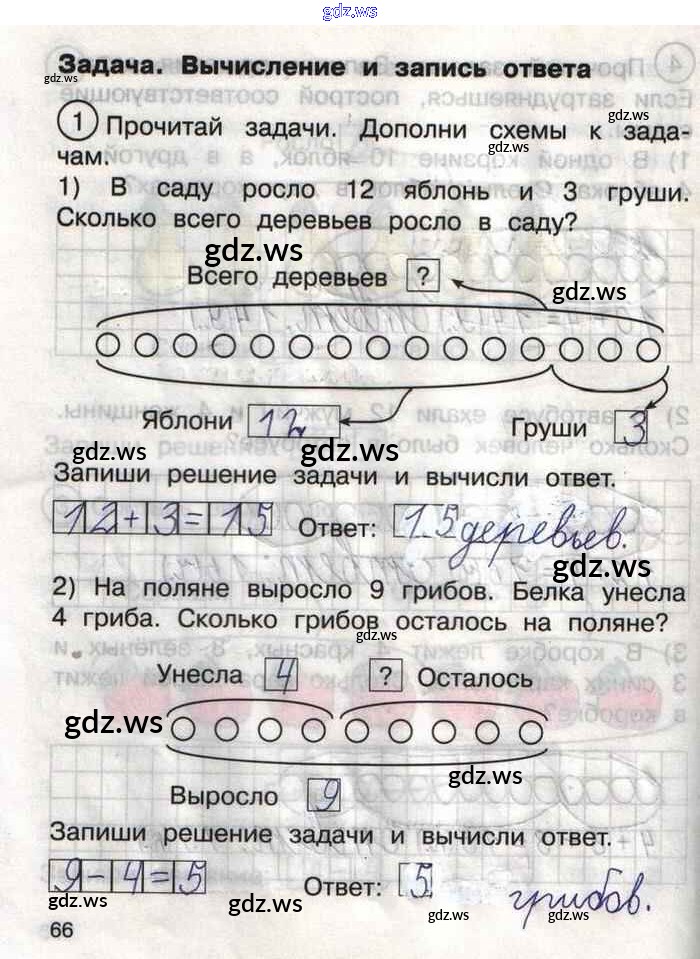 gdz.ws
Задача. Вычисление и запись ответа
gdz.ws
gdz.ws
1 Прочитай задачи. Дополни схемы к зада-
gdz.ws
чам.
1) В саду росло 12 яблонь и 3 груши.
Сколько всего деревьев росло в саду?
gdz.ws
Всего деревьев ?
gdz.ws
Яблони 12 Груши 3
gdz.ws gdz.ws
Запиши решение задачи и вычисли ответ.
12+3=15 Ответ: 15 деревьев.
gdz.ws
2) На поляне выросло 9 грибов. Белка унесла
4 гриба. Сколько грибов осталось на поляне?
gdz.ws
Унесла 4 ? Осталось
gdz.ws
gdz.ws
Выросло 9
Запиши решение задачи и вычисли ответ.
9-4=5 Ответ: 5 грибов.
gdz.ws gdz.ws gdz.ws gdz.ws
66